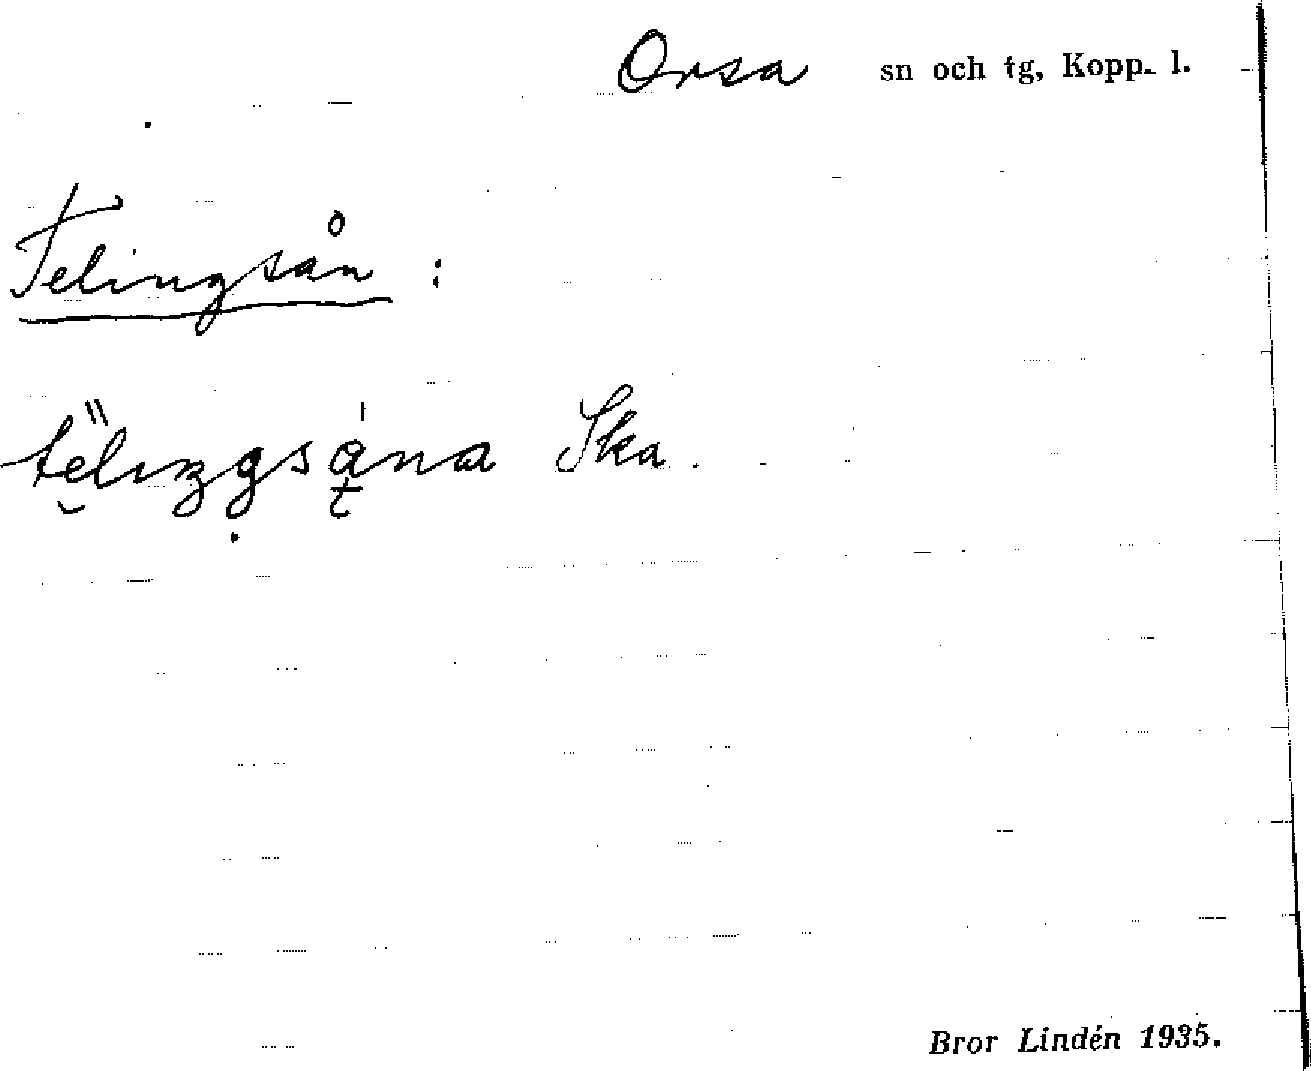 Orsa sn och tg, Kopp. l.
Telingsån :
Ska.
Bror Lindén 1935.